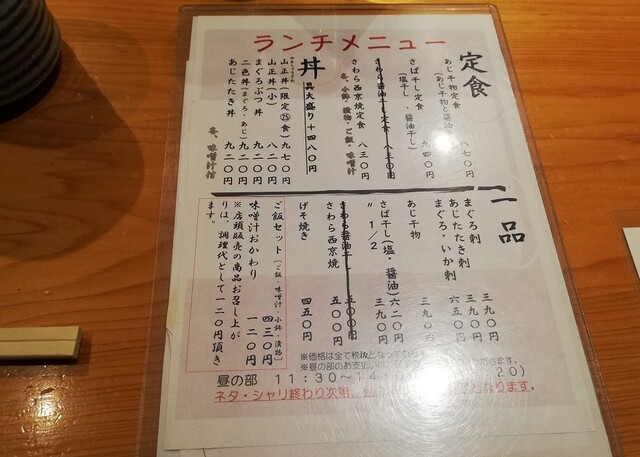 ランチメニュー
定食
あじ干物定食 八七〇円
(あじ干物と醤油
さば干し定食 九四〇円
(塩干し・醤油干し)
さわら醤油干し定食 八三〇円
さわら西京焼定食 八三〇円
壺、小鉢・漬物・ご飯・味噌汁
丼
具大盛り+四八〇円
山正丼(限定㉕食) 九七〇円
山正丼(小) 八二〇円
まぐろぶつ丼 九二〇円
二色丼(まぐろ・あじ) 九二〇円
あじたたき丼 九二〇円
壺、味噌汁付
一品
まぐろ刺 三九〇円
あじたたき刺 三九〇円
まぐろ・いか刺 六五〇円
あじ干物 三九〇円
さば干し(塩・醤油) 六二〇円
〃 1/2 三九〇円
さわら醤油干し 五〇〇円
さわら西京焼 五〇〇円
げそ焼き 四五〇円
ご飯セット(ご飯・味噌汁・小鉢・漬物) 四三〇円
味噌汁おかわり 一二〇円
※店頭販売の商品お召し上が
りは、調理代として一二〇円頂き
ます。
※価格は全て税抜となって
※昼の部のお支払い
昼の部 11:30~14:
20)
ネタ・シャリ終わり次第、
となります。